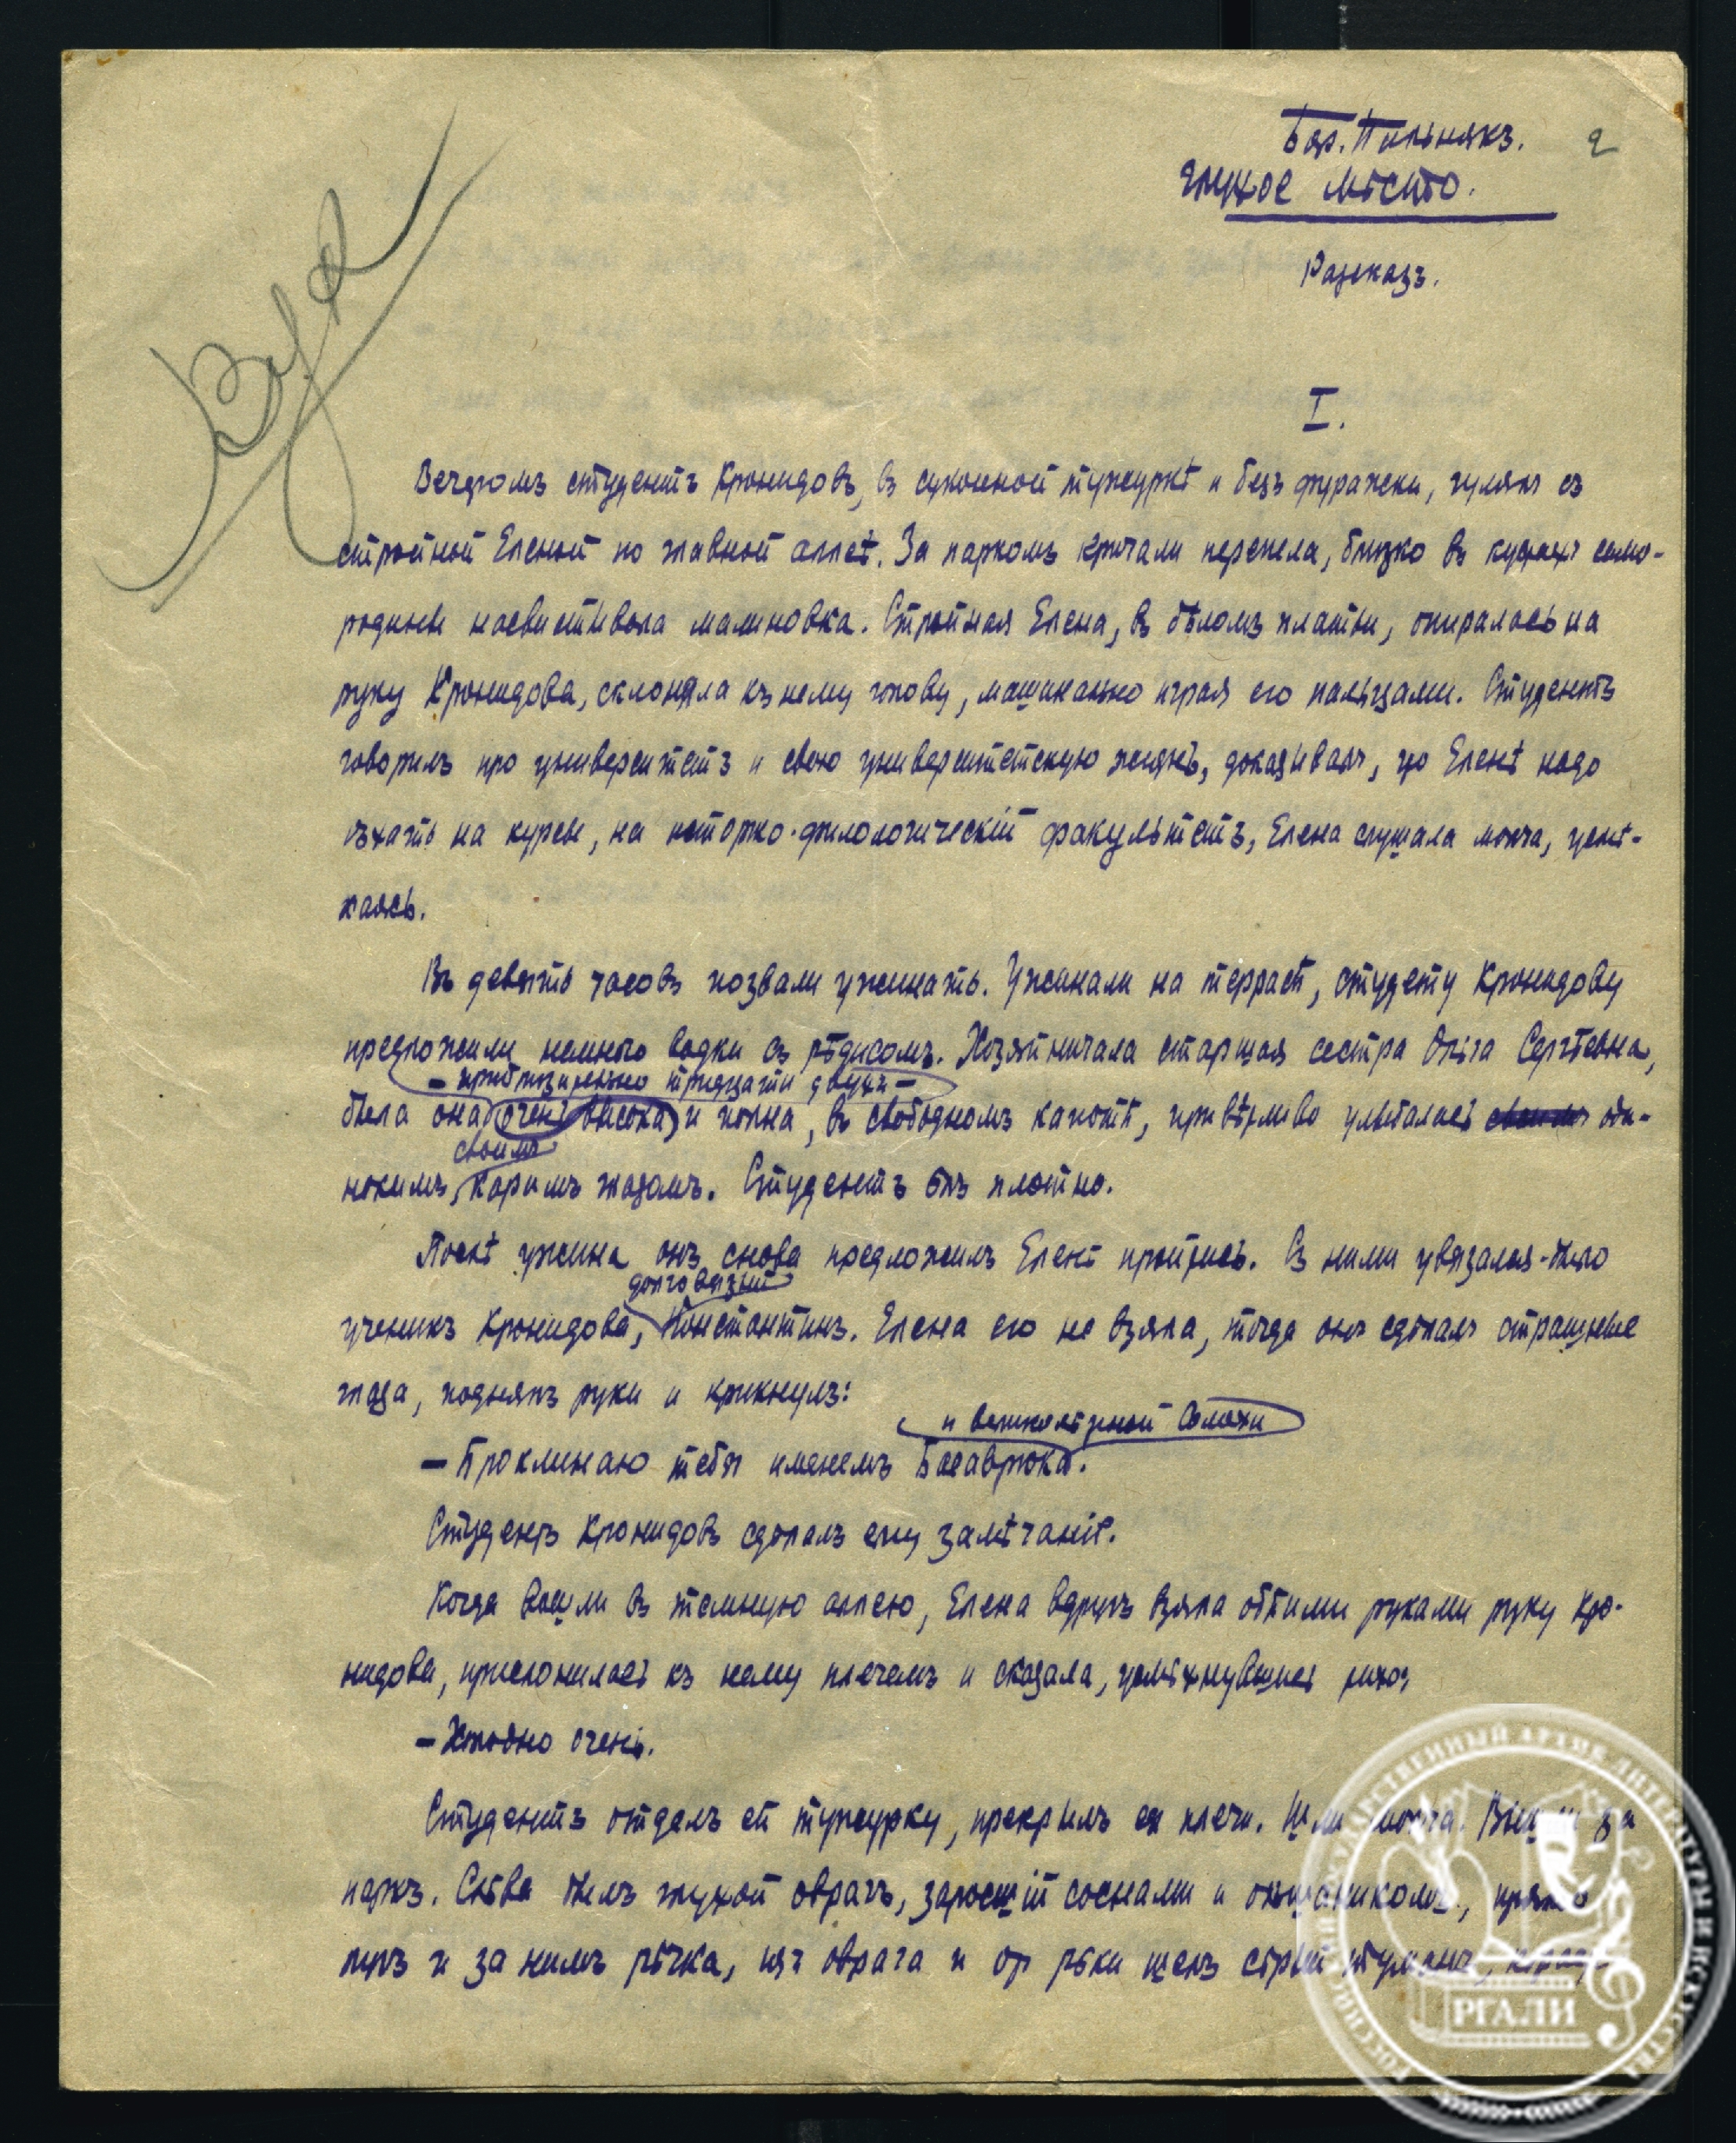 Бор. Пильнякъ. 2
Глухое мѣсто.
Разсказъ.
I.
Вечеромъ студентъ Кронидовъ, въ суконной тужуркѣ и безъ фуражки, гулялъ съ
стройной Еленой по главной аллеѣ. За паркомъ кричали перепела, близко въ кустахъ смо-
родины насвистывала малиновка. Стройная Елена, въ бѣломъ платьи, опиралась на
руку Кронидова, склоняла къ нему голову, машинально играя его пальцами. Студентъ
говорилъ про университетъ и свою университетскую жизнь, доказывалъ, что Еленѣ надо
ѣхать на курсы, на исторко-филологическій факультетъ, Елена слушала молча, усмѣ-
хаясь.
Въ девять часовъ позвали ужинать. Ужинали на террасѣ, студету Кронидову
предложили немного водки съ рѣдисомъ. Хозяйничала старшая сестра Ольга Сергѣевна,
– приблизительно тридцати двухъ –
была она очень высока и полна, въ свободномъ капотѣ, привѣтливо улыбалась своимъ оди-
своимъ
нокимъ, каримъ глазомъ. Студентъ ѣлъ плотно.
Послѣ ужина онъ снова предложилъ Еленѣ пройтись. Съ ними увязался-было
долговязый
ученикъ Кронидова, Константинъ. Елена его не взяла, тогда онъ сдѣлалъ страшные
глаза, поднялъ руки и крикнулъ:
и великолѣпной Соломахи
– Проклинаю тебя именемъ Басаврюка.
Студентъ Кронидовъ сдѣлалъ ему замѣчаніе.
Когда вошли въ темную аллею, Елена вдругъ взяла обѣими руками руку Кро-
нидова, прислонилась къ нему плечемъ и сказала, усмѣхнувшись тихо:
– Холодно очень.
Студентъ отдалъ ей тужурку, прекрылъ ея плечи. Шли молча. Вышли за
паркъ. Слѣва былъ глухой оврагъ, заросшій соснами и орѣшникомъ, прямо
лугъ и за нимъ рѣчка, изъ оврага и от рѣки шелъ сѣрый туманъ,
РГАЛИ
РОССИЙСКИЙ ГОСУДАРСТВЕННЫЙ АРХИВ ЛИТЕРАТУРЫ И ИСКУССТВА